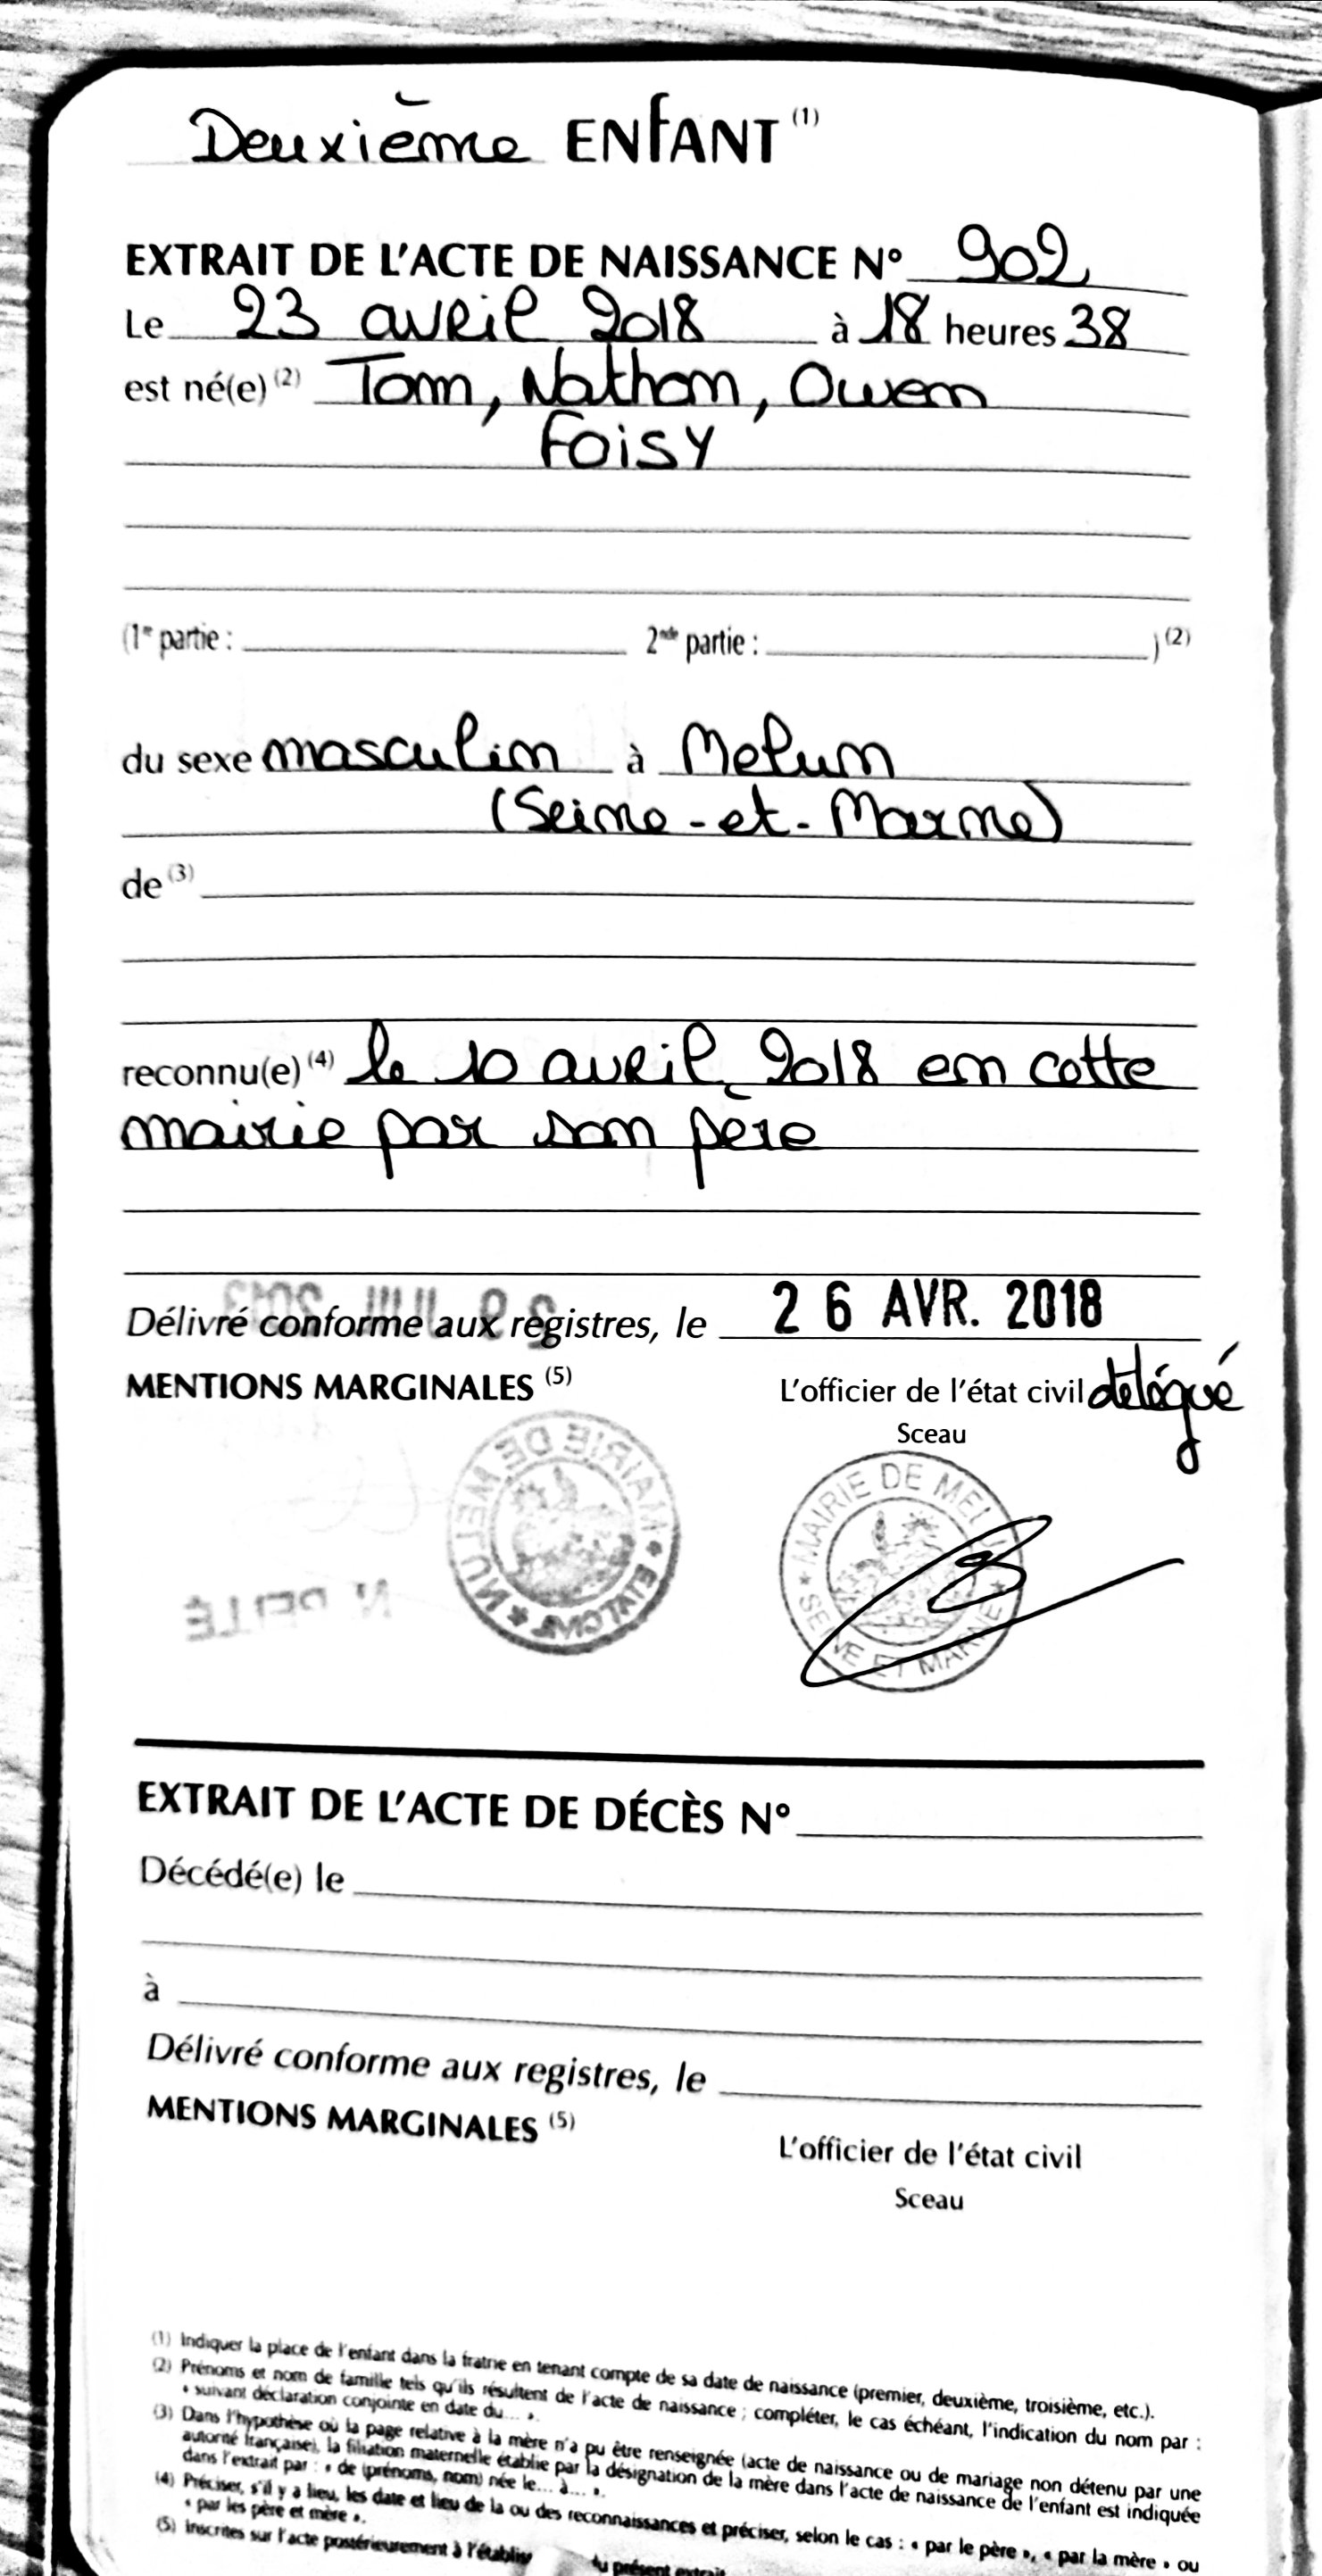 Deuxième ENFANT (1)
EXTRAIT DE L'ACTE DE NAISSANCE N° 902
Le 23 avril 2018 à 18 heures 38
est né(e) (2) Tom, Nathan, Owen
FOISY
(1re partie : 2nde partie : ) (2)
du sexe masculin à Melun
(Seine-et-Marne)
de (3)
reconnu(e) (4) le 10 avril 2018 en cette
mairie par son père
Délivré conforme aux registres, le 26 AVR. 2018
MENTIONS MARGINALES (5)
L'officier de l'état civil délégué
Sceau
MAIRIE DE MELUN
ETAT CIVIL
MAIRIE DE MELUN
SEINE ET MARNE
EXTRAIT DE L'ACTE DE DÉCÈS N°
Décédé(e) le
à
Délivré conforme aux registres, le
MENTIONS MARGINALES (5)
L'officier de l'état civil
Sceau
(1) Indiquer la place de l'enfant dans la fratrie en tenant compte de sa date de naissance (premier, deuxième, troisième, etc.).
(2) Prénoms et nom de famille tels qu'ils résultent de l'acte de naissance ; compléter, le cas échéant, l'indication du nom par :
« suivant déclaration conjointe en date du... ».
(3) Dans l'hypothèse où la page relative à la mère n'a pu être renseignée (acte de naissance ou de mariage non détenu par une
autorité française), la filiation maternelle établie par la désignation de la mère dans l'acte de naissance de l'enfant est indiquée
dans l'extrait par : « de (prénoms, nom) née le... à... ».
(4) Préciser, s'il y a lieu, les date et lieu de la ou des reconnaissances et préciser, selon le cas : « par le père », « par la mère » ou
« par les père et mère ».
(5) Inscrites sur l'acte postérieurement à présent extrait